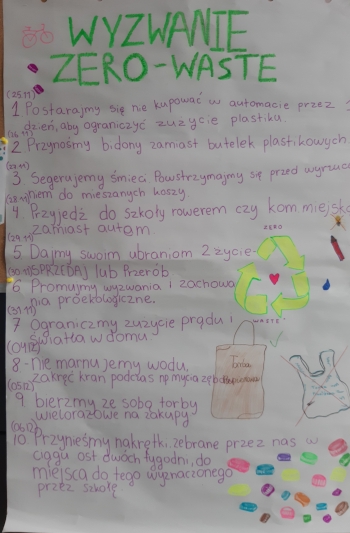 WYZWANIE
ZERO-WASTE
(25.11)
1 Postarajmy się nie kupować w automacie przez 1
dzień, aby ograniczyć zużycie plastiku.
(26.11)
2 Przynośmy bidony zamiast butelek plastikowych
3 Segerujemy śmieci Powstrzymajmy się przed wyrzuca
niem do mieszanych koszy.
(28.11)
4. Przyjedź do szkoły rowerem czy kom. miejską
zamiast autam
(29.11)
5 Dajmy swoim ubraniom 2 życie-
(30.11) SPRZEDAJ lub Przerób
6 Promujmy wyzwania i zachowa
nia proekologiczne.
(31.11)
7 Ograniczmy zużycie prądu i
światła w domu.
8- nie marnujemy wodu,
zakręć kran podczas np mycia zębów
9 bierzmy ze sobą torby
wielorazowe na zakupy
10. Przynieśmy nakrętki zebrane przez nas w
ciągu ost dwóch tygodni, do
miejsca do tego wyznaczonego
przez szkołę
ZERO
WASTE
Torba